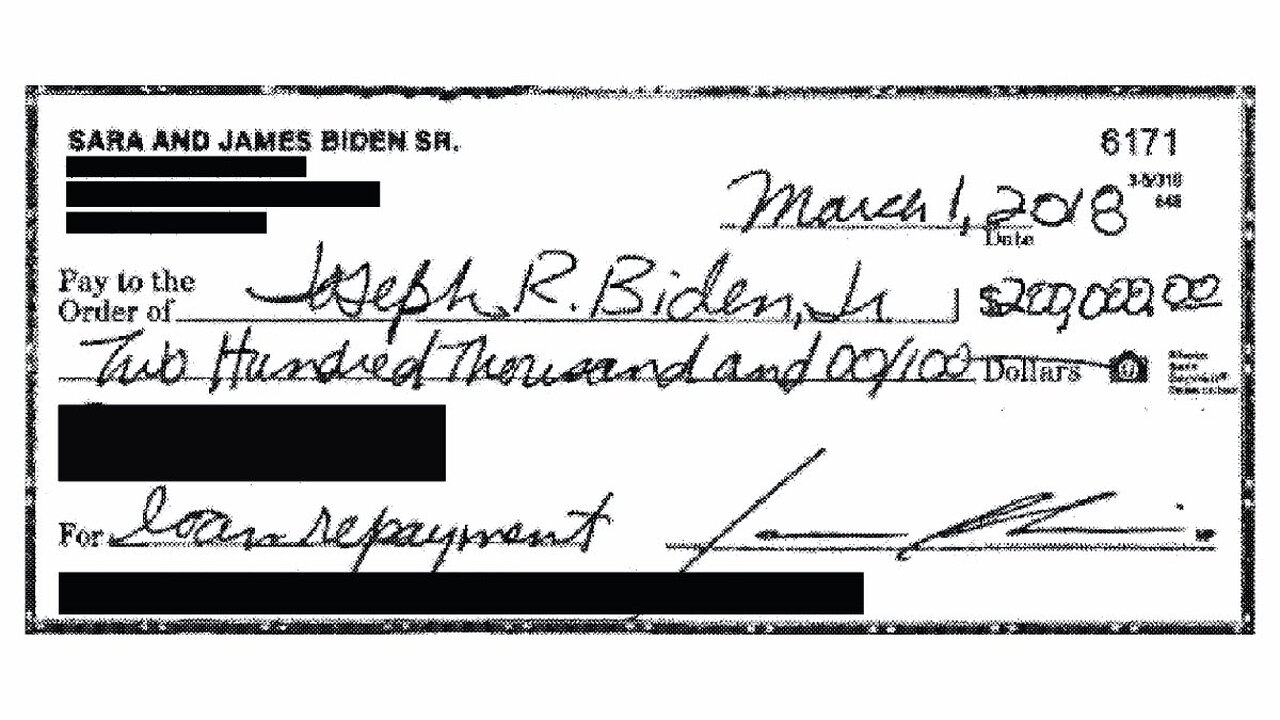 SARA AND JAMES BIDEN SR.
6171
March 1, 2018
Date
Pay to the
Order of Joseph R. Biden, Jr $200,000.00
Two Hundred Thousand and 00/100 Dollars
For loan repayment
MP